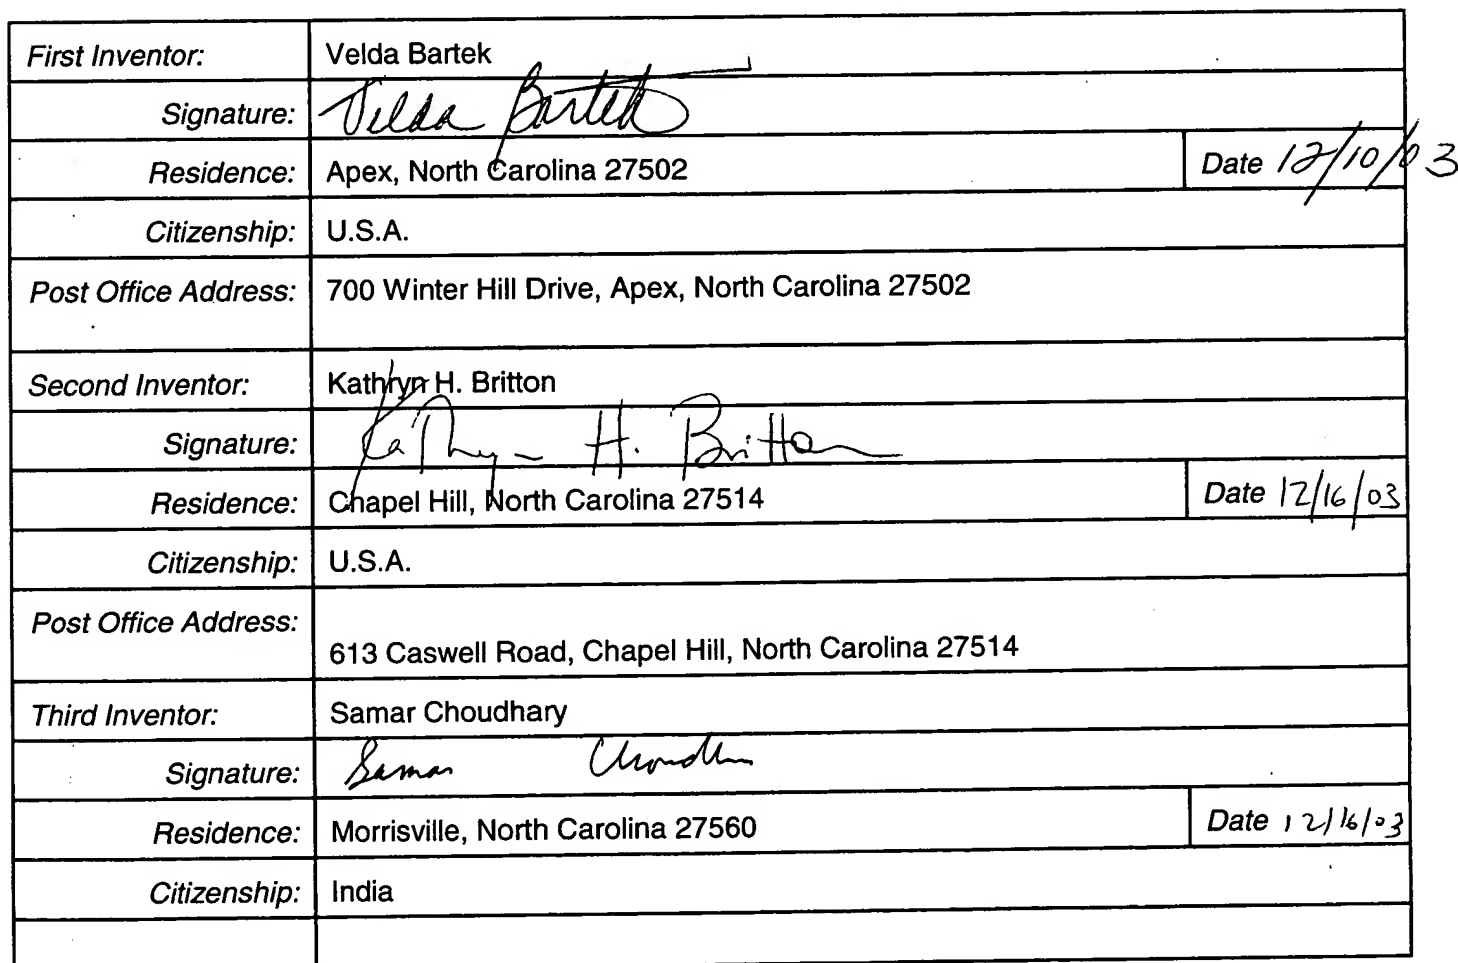 First Inventor: Velda Bartek
Signature: Velda Bartek
Residence: Apex, North Carolina 27502 Date 12/10/03
Citizenship: U.S.A.
Post Office Address: 700 Winter Hill Drive, Apex, North Carolina 27502
Second Inventor: Kathryn H. Britton
Signature: Kathryn H. Britton
Residence: Chapel Hill, North Carolina 27514 Date 12/16/03
Citizenship: U.S.A.
Post Office Address:
613 Caswell Road, Chapel Hill, North Carolina 27514
Third Inventor: Samar Choudhary
Signature: Samar Choudhary
Residence: Morrisville, North Carolina 27560 Date 12/16/03
Citizenship: India